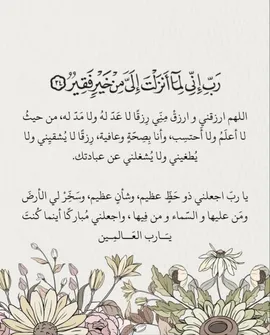 رَبِّ إِنِّي لِمَا أَنزَلْتَ إِلَيَّ مِنْ خَيْرٍ فَقِيرٌ ۝٢٤
اللهم ارزقني و ارزقْ مِنّي رِزقًا لا عَدّ لهُ ولا مَدّ له، من حيثُ
لا أعلَمُ ولا أحتسِب، وأنا بِصِحّةٍ وعافية، رِزقًا لا يُشقيني ولا
يُطغيني ولا يُشغلني عن عبادتك.
يا ربّ اجعلني ذو حَظٍّ عظيم، وشأنٍ عظيم، وسَخِّرْ لي الأرضَ
ومَن عليها و السّماء و من فِيها ، واجعلني مُباركًا أينما كُنتَ
يَـارب العَـالمِـين